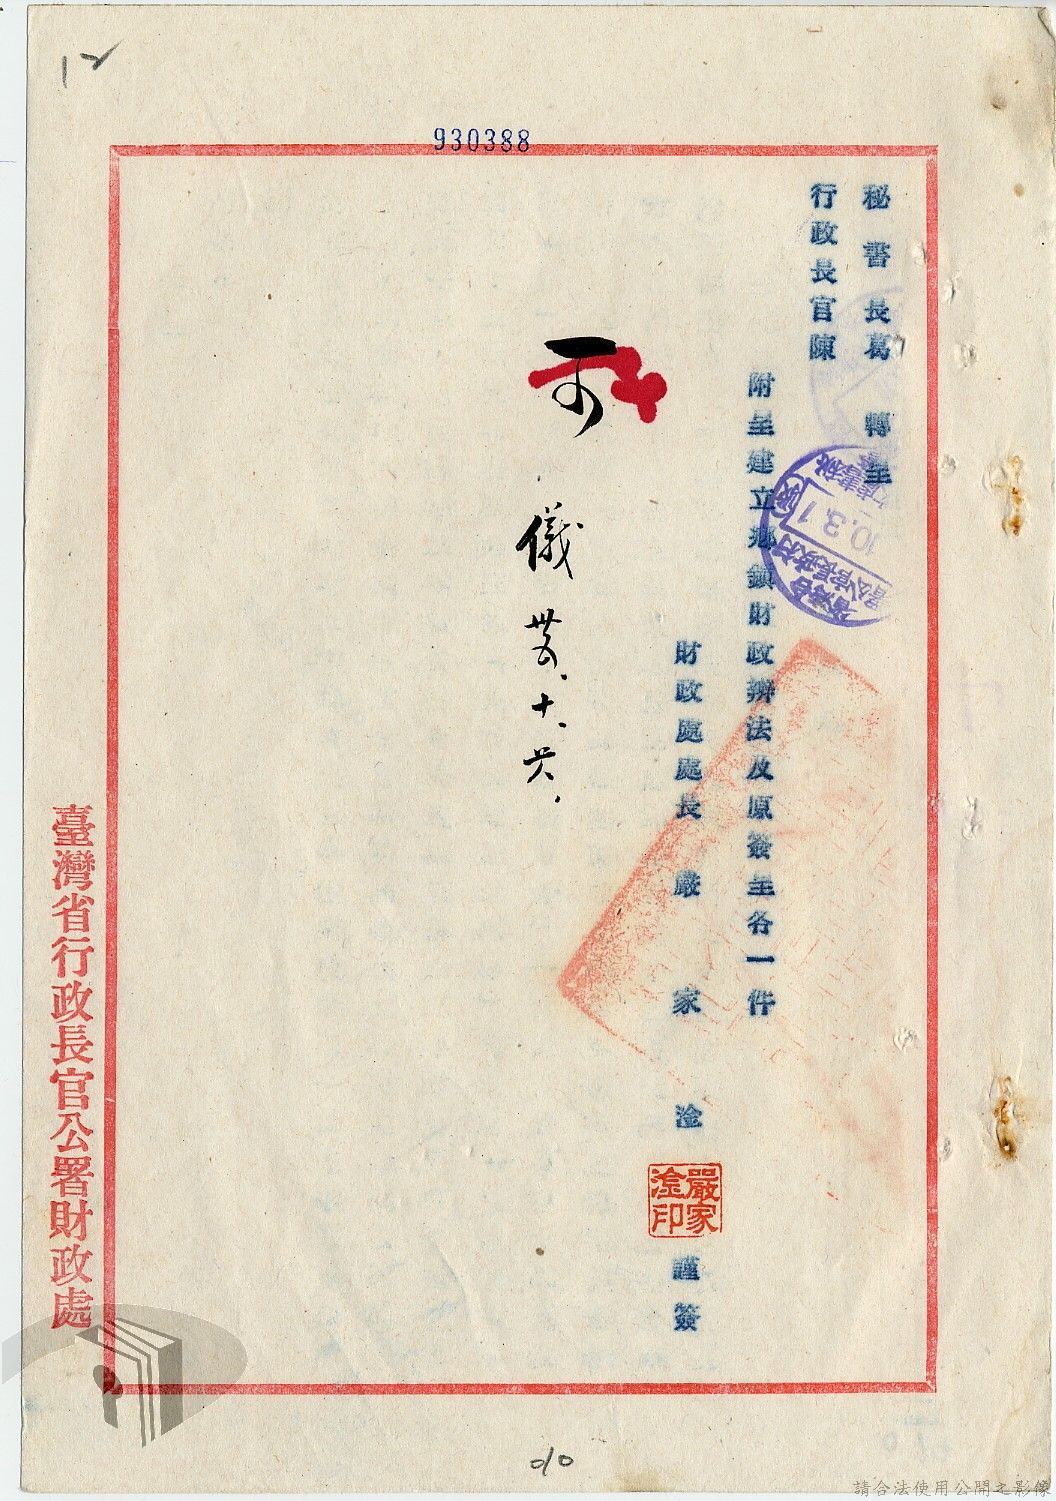 12
930388
秘書長葛　轉呈
行政長官陳
附呈建立鄉鎮財政辦法及原簽呈各一件
財政處處長嚴家淦
嚴家淦印
謹簽
可
儀 卅五、十、廿六、
臺灣省行政長官公署財政處
10.3.1
010
請合法使用公開之影像